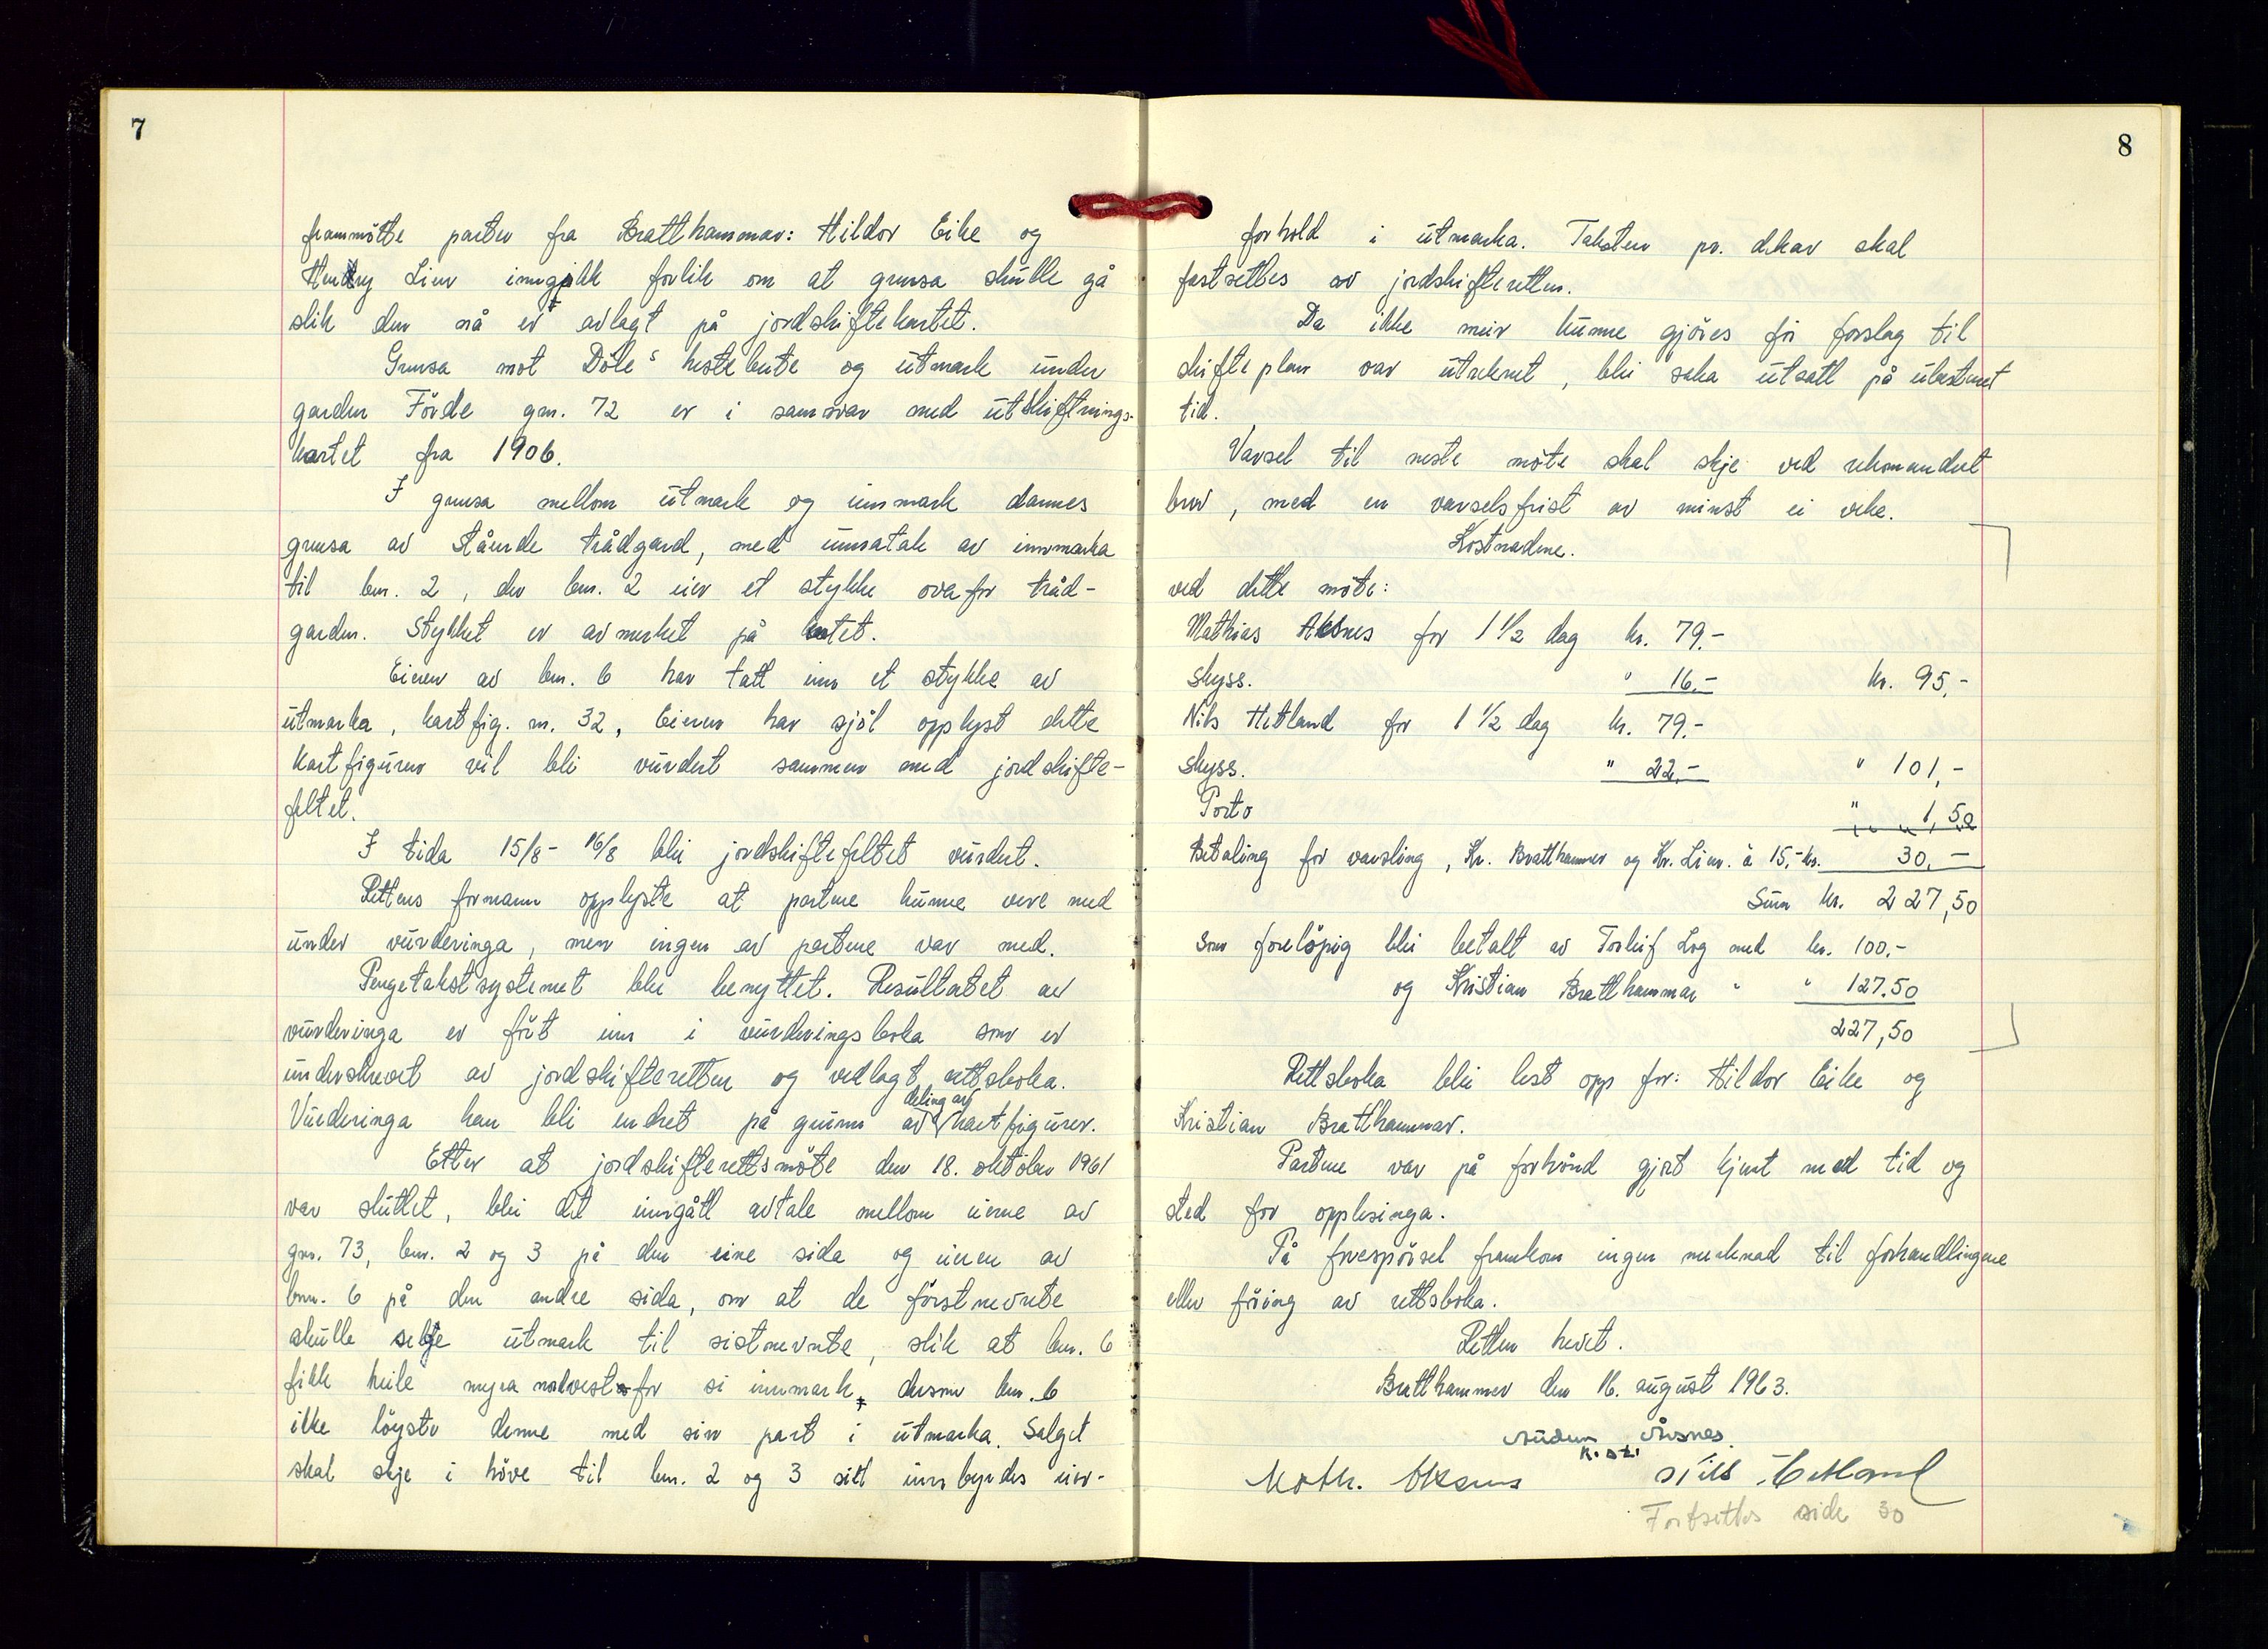 7
frammötte parter fra Bratthammar: Hildor Eike og
Henry Lien inngjekk forlik om at grensa skulle gå
slik den nå er avlagt på jordskiftekartet.
Grensa mot Döle's hestebeite og utmark under
garden Förde gnr. 72 er i samsvar med utskiftnings-
kartet fra 1906.
I grensa mellom utmark og innmark dannes
grensa av stående trådgard, med unnatak av innmarka
til bnr. 2, der bnr. 2 eier et stykke ovafor tråd-
garden. Stykket er avmerket på kartet.
Eieren av bnr. 6 har tatt inn et stykke av
utmarka, kartfig. nr. 32, Eieren har sjöl opplyst dette
Kartfiguren vil bli vurdert sammen med jordskifte-
feltet.
I tida 15/8 - 16/8 blei jordskiftefeltet vurdert.
Rettens formann opplyste at partene kunne vere med
under vurderinga, men ingen av partene var med.
Pengetakstsystemet blei benyttet. Resultatet av
vurderinga er fört inn i vurderingsboka som er
underskrevet av jordskifteretten og vedlagt rettsboka.
Vurderinga kan bli endret på grunn av deling av kartfigurer.
Etter at jordskifterettsmöte den 18. oktober 1961
var sluttet, blei det inngått avtale mellom eierne av
gnr. 73, bnr. 2 og 3 på den eine sida og eieren av
bnr. 6 på den andre sida, om at de förstnevnte
skulle selge utmark til sistnevnte, slik at bnr. 6
fikk heile myra nordvestfor si innmark, dersom bnr. 6
ikke löyste denne med sin part i utmarka. Salget
skal skje i höve til bnr. 2 og 3 sitt innbyrdes eier-
8
forhold i utmarka. Taksten pr. dekar skal
fastsettes av jordskifteretten.
Da ikke meir kunne gjöres för forslag til
skifteplan var utreknet, blei saka utsatt på ubestemt
tid.
Varsel til neste möte skal skje ved rekomandert
brev, med en varselsfrist av minst ei veke.
Kostnadene.
ved dette möte:
Mathias Aksnes for 1 1/2 dag kr. 79.-
skyss. " 16.- kr. 95,-
Nils Hetland for 1 1/2 dag kr. 79.-
skyss. " 22.- " 101,-
Porto " 1,50
Betaling for varsling, Kr. Bratthammer og Kr. Lien. à 15,- kr. 30.-
Sum kr. 227,50
Som forelöpig blei betalt av Torleif Log med kr. 100.-
og Kristian Bratthammar " " 127.50
227,50
Rettsboka blei lest opp for: Hildor Eike og
Kristian Bratthammar.
Partene var på forhånd gjort kjent med tid og
sted for opplesinga.
På forespörsel framkom ingen merknad til forhandlingene
eller föring av rettsboka.
Retten hevet.
Bratthammer den 16. august 1963.
Audun Åsnes
Math. Aksnes Nils Hetland
Fortsettes side 30